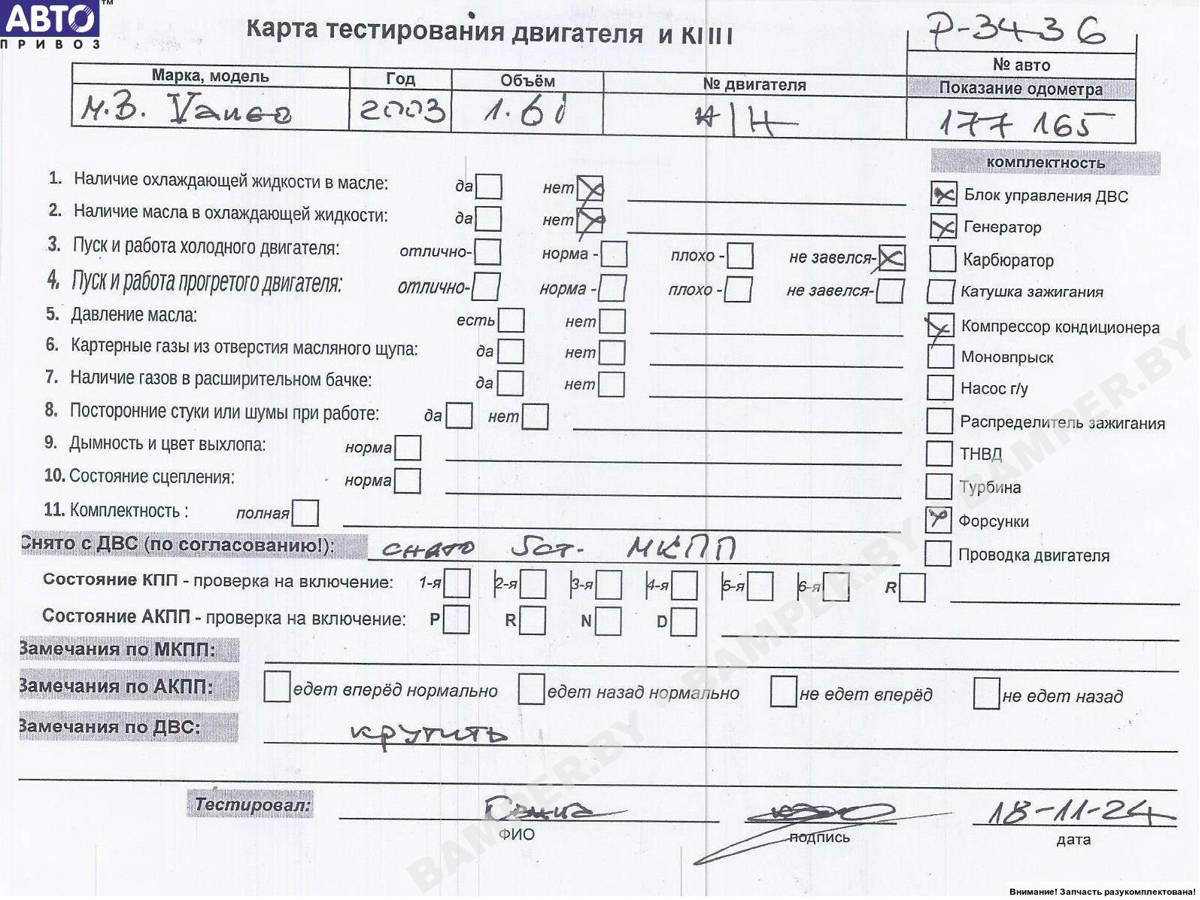 АВТО™
ПРИВОЗ
Карта тестирования двигателя и КПП
P-3436
№ авто
Марка, модель Год Объём № двигателя Показание одометра
М.В. Vaneo 2003 1.6i Н/Н 177 165
комплектность
1. Наличие охлаждающей жидкости в масле: да нет
Блок управления ДВС
2. Наличие масла в охлаждающей жидкости: да нет
Генератор
3. Пуск и работа холодного двигателя: отлично- норма - плохо - не завелся-
Карбюратор
4. Пуск и работа прогретого двигателя: отлично- норма - плохо - не завелся-
Катушка зажигания
5. Давление масла: есть нет
Компрессор кондиционера
6. Картерные газы из отверстия масляного щупа: да нет
Моновпрыск
7. Наличие газов в расширительном бачке: да нет
Насос г/у
8. Посторонние стуки или шумы при работе: да нет
Распределитель зажигания
9. Дымность и цвет выхлопа: норма
ТНВД
10. Состояние сцепления: норма
Турбина
11. Комплектность : полная
Форсунки
Снято с ДВС (по согласованию!): снято 5ст. МКПП
Проводка двигателя
Состояние КПП - проверка на включение: 1-я 2-я 3-я 4-я 5-я 6-я R
Состояние АКПП - проверка на включение: P R N D
Замечания по МКПП:
Замечания по АКПП: едет вперёд нормально едет назад нормально не едет вперёд не едет назад
Замечания по ДВС: крутить
Тестировал: 18-11-24
ФИО подпись дата
BAMPER.BY BAMPER.BY BAMPER.BY BAMPER.BY
Внимание! Запчасть разукомплектована!